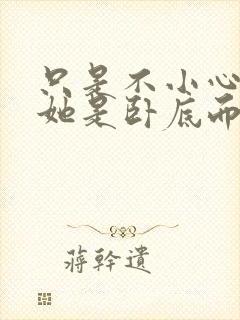 只是不小心
她是卧底而
蒋幹遺